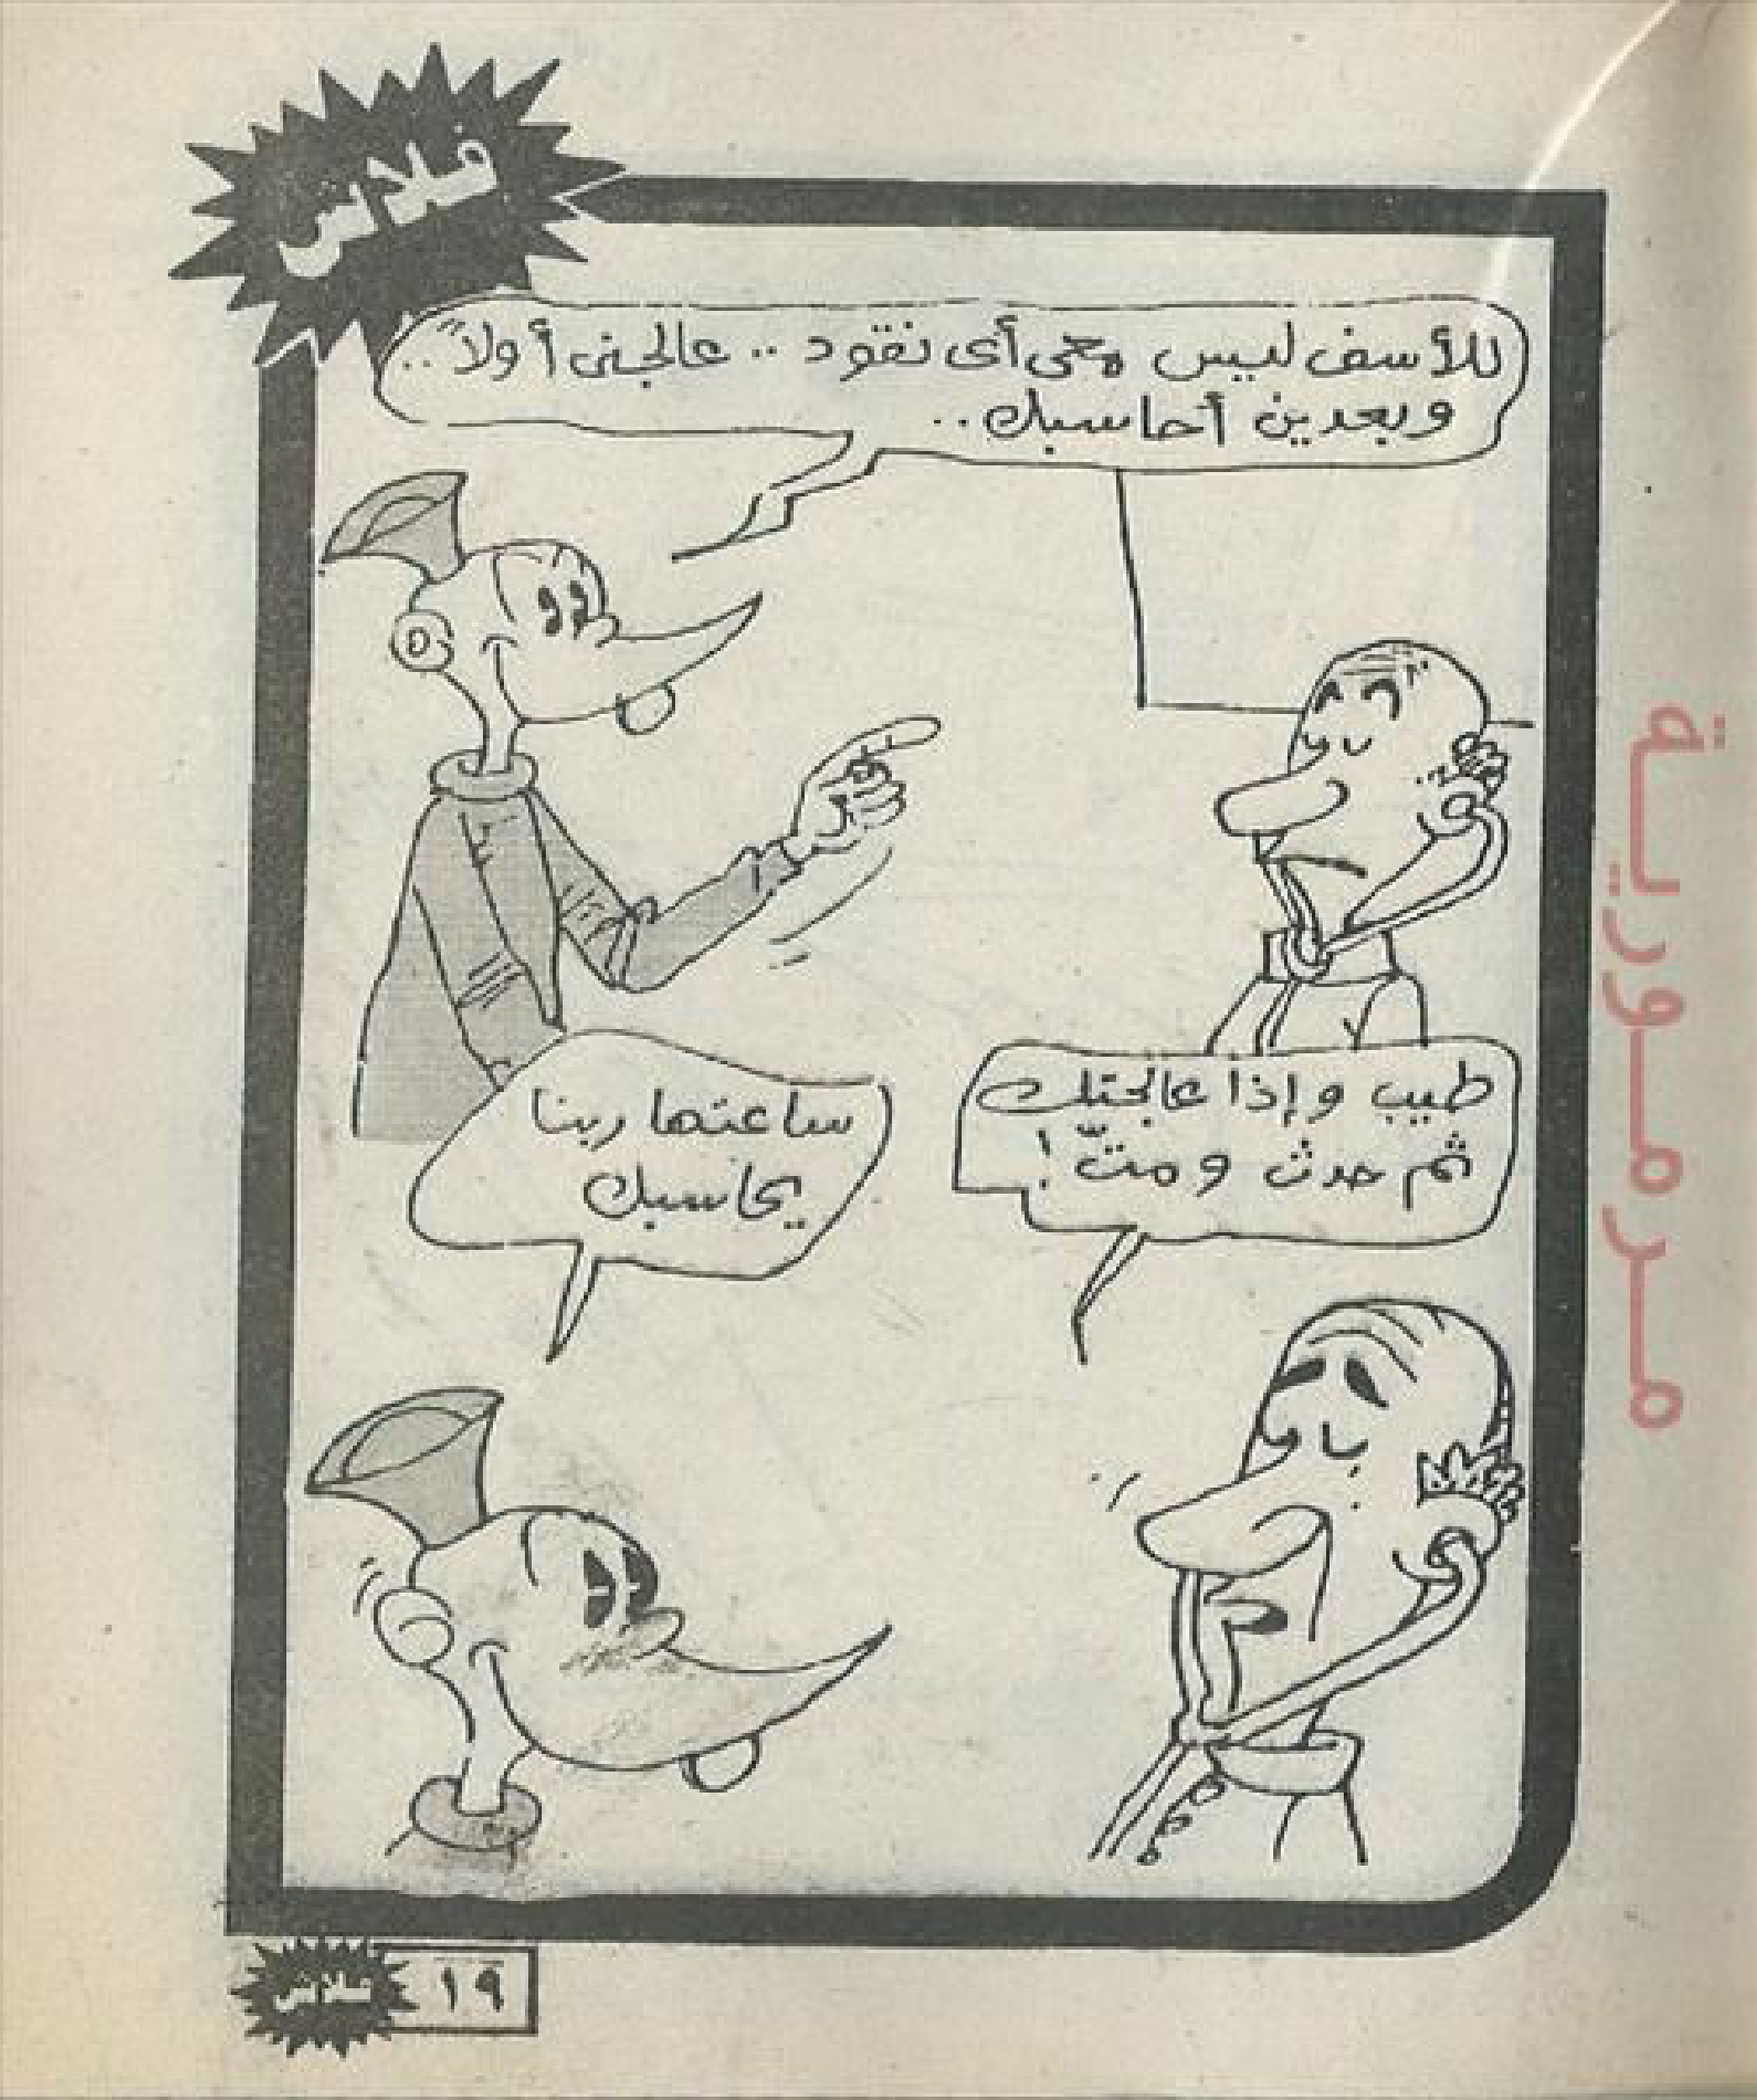 فلاش
للأسف ليس معى أى نقود .. عالجنى أولاً ..
وبعدين أحاسبك ..
طيب وإذا عالجتك
ثم حدث ومتّ !
ساعتها ربنا
يحاسبك
مرمورية
فلاش
١٩